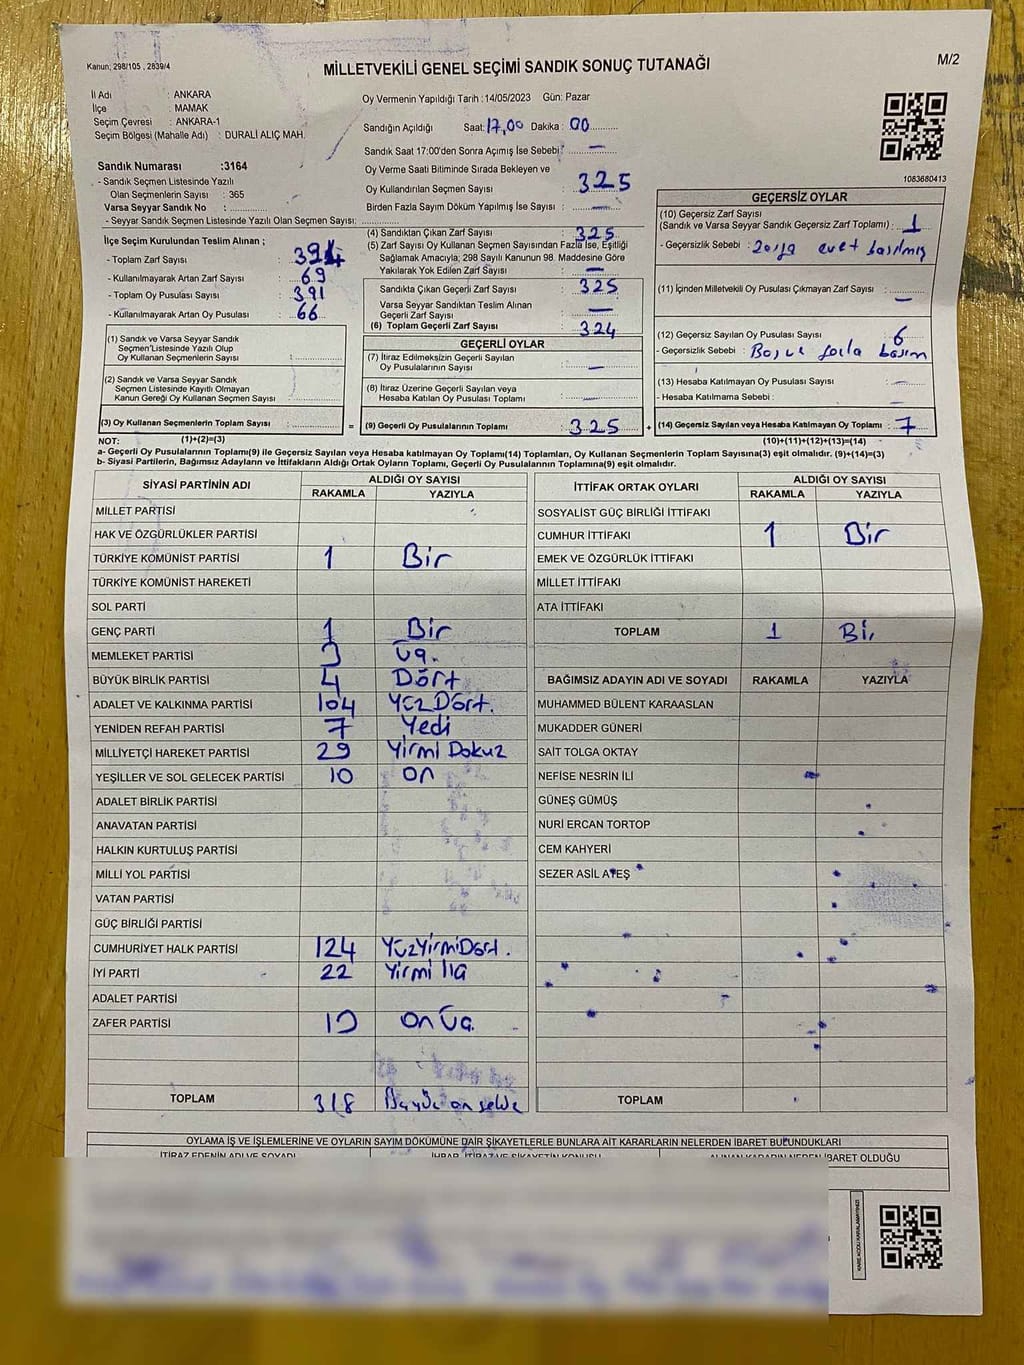 Kanun; 298/105 , 2839/4
MİLLETVEKİLİ GENEL SEÇİMİ SANDIK SONUÇ TUTANAĞI
M/2
İl Adı : ANKARA
İlçe : MAMAK
Seçim Çevresi : ANKARA-1
Seçim Bölgesi (Mahalle Adı) : DURALİ ALIÇ MAH.
Oy Vermenin Yapıldığı Tarih :14/05/2023 Gün: Pazar
Sandığın Açıldığı Saat: 17,00 Dakika : 00
Sandık Saat 17:00'den Sonra Açımış İse Sebebi : —
Oy Verme Saati Bitiminde Sırada Bekleyen ve
Oy Kullandırılan Seçmen Sayısı : 325
Birden Fazla Sayım Döküm Yapılmış İse Sayısı : —
Sandık Numarası :3164
- Sandık Seçmen Listesinde Yazılı
Olan Seçmenlerin Sayısı : 365
Varsa Seyyar Sandık No :
- Seyyar Sandık Seçmen Listesinde Yazılı Olan Seçmen Sayısı:
İlçe Seçim Kurulundan Teslim Alınan ;
- Toplam Zarf Sayısı :
- Kullanılmayarak Artan Zarf Sayısı : 69
- Toplam Oy Pusulası Sayısı : 391
- Kullanılmayarak Artan Oy Pusulası : 66
(1) Sandık ve Varsa Seyyar Sandık
Seçmen Listesinde Yazılı Olup
Oy Kullanan Seçmenlerin Sayısı :
(2) Sandık ve Varsa Seyyar Sandık
Seçmen Listesinde Kayıtlı Olmayan
Kanun Gereği Oy Kullanan Seçmen Sayısı :
(3) Oy Kullanan Seçmenlerin Toplam Sayısı :
(4) Sandıktan Çıkan Zarf Sayısı : 325
(5) Zarf Sayısı Oy Kullanan Seçmen Sayısından Fazla İse, Eşitliği
Sağlamak Amacıyla; 298 Sayılı Kanunun 98. Maddesine Göre
Yakılarak Yok Edilen Zarf Sayısı : —
Sandıkta Çıkan Geçerli Zarf Sayısı : 325
Varsa Seyyar Sandıktan Teslim Alınan
Geçerli Zarf Sayısı : —
(6) Toplam Geçerli Zarf Sayısı : 324
GEÇERLİ OYLAR
(7) İtiraz Edilmeksizin Geçerli Sayılan
Oy Pusulalarının Sayısı : —
(8) İtiraz Üzerine Geçerli Sayılan veya
Hesaba Katılan Oy Pusulası Toplamı : —
= (9) Geçerli Oy Pusulalarının Toplamı : 325
1083680413
GEÇERSİZ OYLAR
(10) Geçersiz Zarf Sayısı
(Sandık ve Varsa Seyyar Sandık Geçersiz Zarf Toplamı) : 1
- Geçersizlik Sebebi : evet basılmış
(11) İçinden Milletvekili Oy Pusulası Çıkmayan Zarf Sayısı : —
(12) Geçersiz Sayılan Oy Pusulası Sayısı : 6
- Geçersizlik Sebebi : fazla basım
(13) Hesaba Katılmayan Oy Pusulası Sayısı : —
- Hesaba Katılmama Sebebi :
+ (14) Geçersiz Sayılan veya Hesaba Katılmayan Oy Toplamı : 7
NOT: (1)+(2)=(3) (10)+(11)+(12)+(13)=(14)
a- Geçerli Oy Pusulalarının Toplamı(9) ile Geçersiz Sayılan veya Hesaba katılmayan Oy Toplamı(14) Toplamları, Oy Kullanan Seçmenlerin Toplam Sayısına(3) eşit olmalıdır. (9)+(14)=(3)
b- Siyasi Partilerin, Bağımsız Adayların ve İttifakların Aldığı Ortak Oyların Toplamı, Geçerli Oy Pusulalarının Toplamına(9) eşit olmalıdır.
SİYASİ PARTİNİN ADI ALDIĞI OY SAYISI
RAKAMLA YAZIYLA
MİLLET PARTİSİ
HAK VE ÖZGÜRLÜKLER PARTİSİ
TÜRKİYE KOMÜNİST PARTİSİ 1 Bir
TÜRKİYE KOMÜNİST HAREKETİ
SOL PARTİ
GENÇ PARTİ 1 Bir
MEMLEKET PARTİSİ 3 Üç.
BÜYÜK BİRLİK PARTİSİ 4 Dört
ADALET VE KALKINMA PARTİSİ 104 Yüz Dört.
YENİDEN REFAH PARTİSİ 7 Yedi
MİLLİYETÇİ HAREKET PARTİSİ 29 Yirmi Dokuz
YEŞİLLER VE SOL GELECEK PARTİSİ 10 On
ADALET BİRLİK PARTİSİ
ANAVATAN PARTİSİ
HALKIN KURTULUŞ PARTİSİ
MİLLİ YOL PARTİSİ
VATAN PARTİSİ
GÜÇ BİRLİĞİ PARTİSİ
CUMHURİYET HALK PARTİSİ 124 YüzYirmiDört.
İYİ PARTİ 22 Yirmi İki
ADALET PARTİSİ
ZAFER PARTİSİ 13 On Üç.
TOPLAM 318
İTTİFAK ORTAK OYLARI ALDIĞI OY SAYISI
RAKAMLA YAZIYLA
SOSYALİST GÜÇ BİRLİĞİ İTTİFAKI
CUMHUR İTTİFAKI 1 Bir
EMEK VE ÖZGÜRLÜK İTTİFAKI
MİLLET İTTİFAKI
ATA İTTİFAKI
TOPLAM 1 Bir
BAĞIMSIZ ADAYIN ADI VE SOYADI RAKAMLA YAZIYLA
MUHAMMED BÜLENT KARAASLAN
MUKADDER GÜNERİ
SAİT TOLGA OKTAY
NEFİSE NESRİN İLİ
GÜNEŞ GÜMÜŞ
NURİ ERCAN TORTOP
CEM KAHYERİ
SEZER ASIL ATEŞ
TOPLAM
OYLAMA İŞ VE İŞLEMLERİNE VE OYLARIN SAYIM DÖKÜMÜNE DAİR ŞİKAYETLERLE BUNLARA AİT KARARLARIN NELERDEN İBARET BULUNDUKLARI
İTİRAZ EDENİN ADI VE SOYADI İHBAR, İTİRAZ VE ŞİKAYETİN KONUSU ALINAN KARARIN NEDEN İBARET OLDUĞU